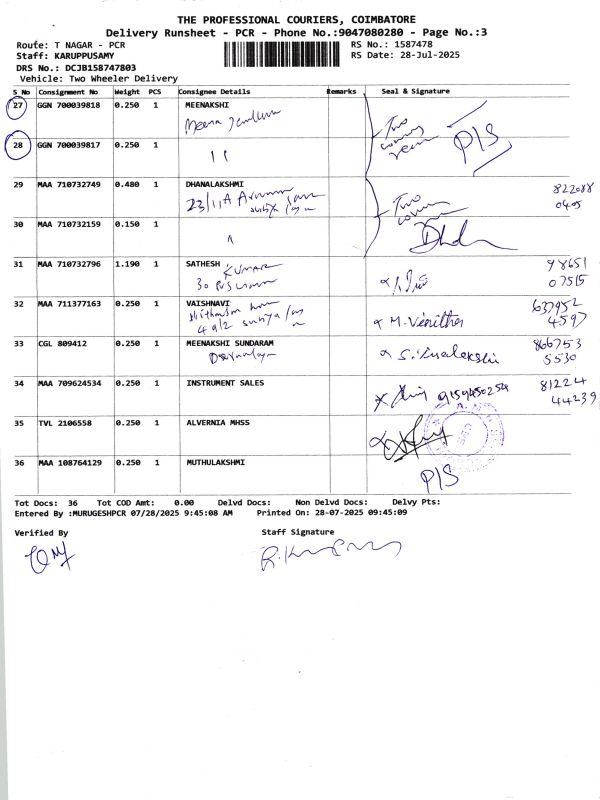 THE PROFESSIONAL COURIERS, COIMBATORE
Delivery Runsheet - PCR - Phone No.:9047080280 - Page No.:3
Route: T NAGAR - PCR
RS No.: 1587478
Staff: KARUPPUSAMY
RS Date: 28-Jul-2025
DRS No.: DCJB158747803
Vehicle: Two Wheeler Delivery
S No Consignment No Weight PCS Consignee Details Remarks Seal & Signature
27 GGN 700039818 0.250 1 MEENAKSHI
Meena
Two
P/S
28 GGN 700039817 0.250 1
11
29 MAA 710732749 0.480 1 DHANALAKSHMI
23/11A
Two
822088
30 MAA 710732159 0.150 1
31 MAA 710732796 1.190 1 SATHESH KUMAR
30
98651
07515
32 MAA 711377163 0.250 1 VAISHNAVI
M. Vénitha
637952
4597
33 CGL 809412 0.250 1 MEENAKSHI SUNDARAM
866753
5530
34 MAA 709624534 0.250 1 INSTRUMENT SALES
9159450254
81224
44239
35 TVL 2106558 0.250 1 ALVERNIA MHSS
36 MAA 108764129 0.250 1 MUTHULAKSHMI
P/S
Tot Docs: 36 Tot COD Amt: 0.00 Delvd Docs: Non Delvd Docs: Delvy Pts:
Entered By :MURUGESHPCR 07/28/2025 9:45:08 AM Printed On: 28-07-2025 09:45:09
Verified By
Staff Signature